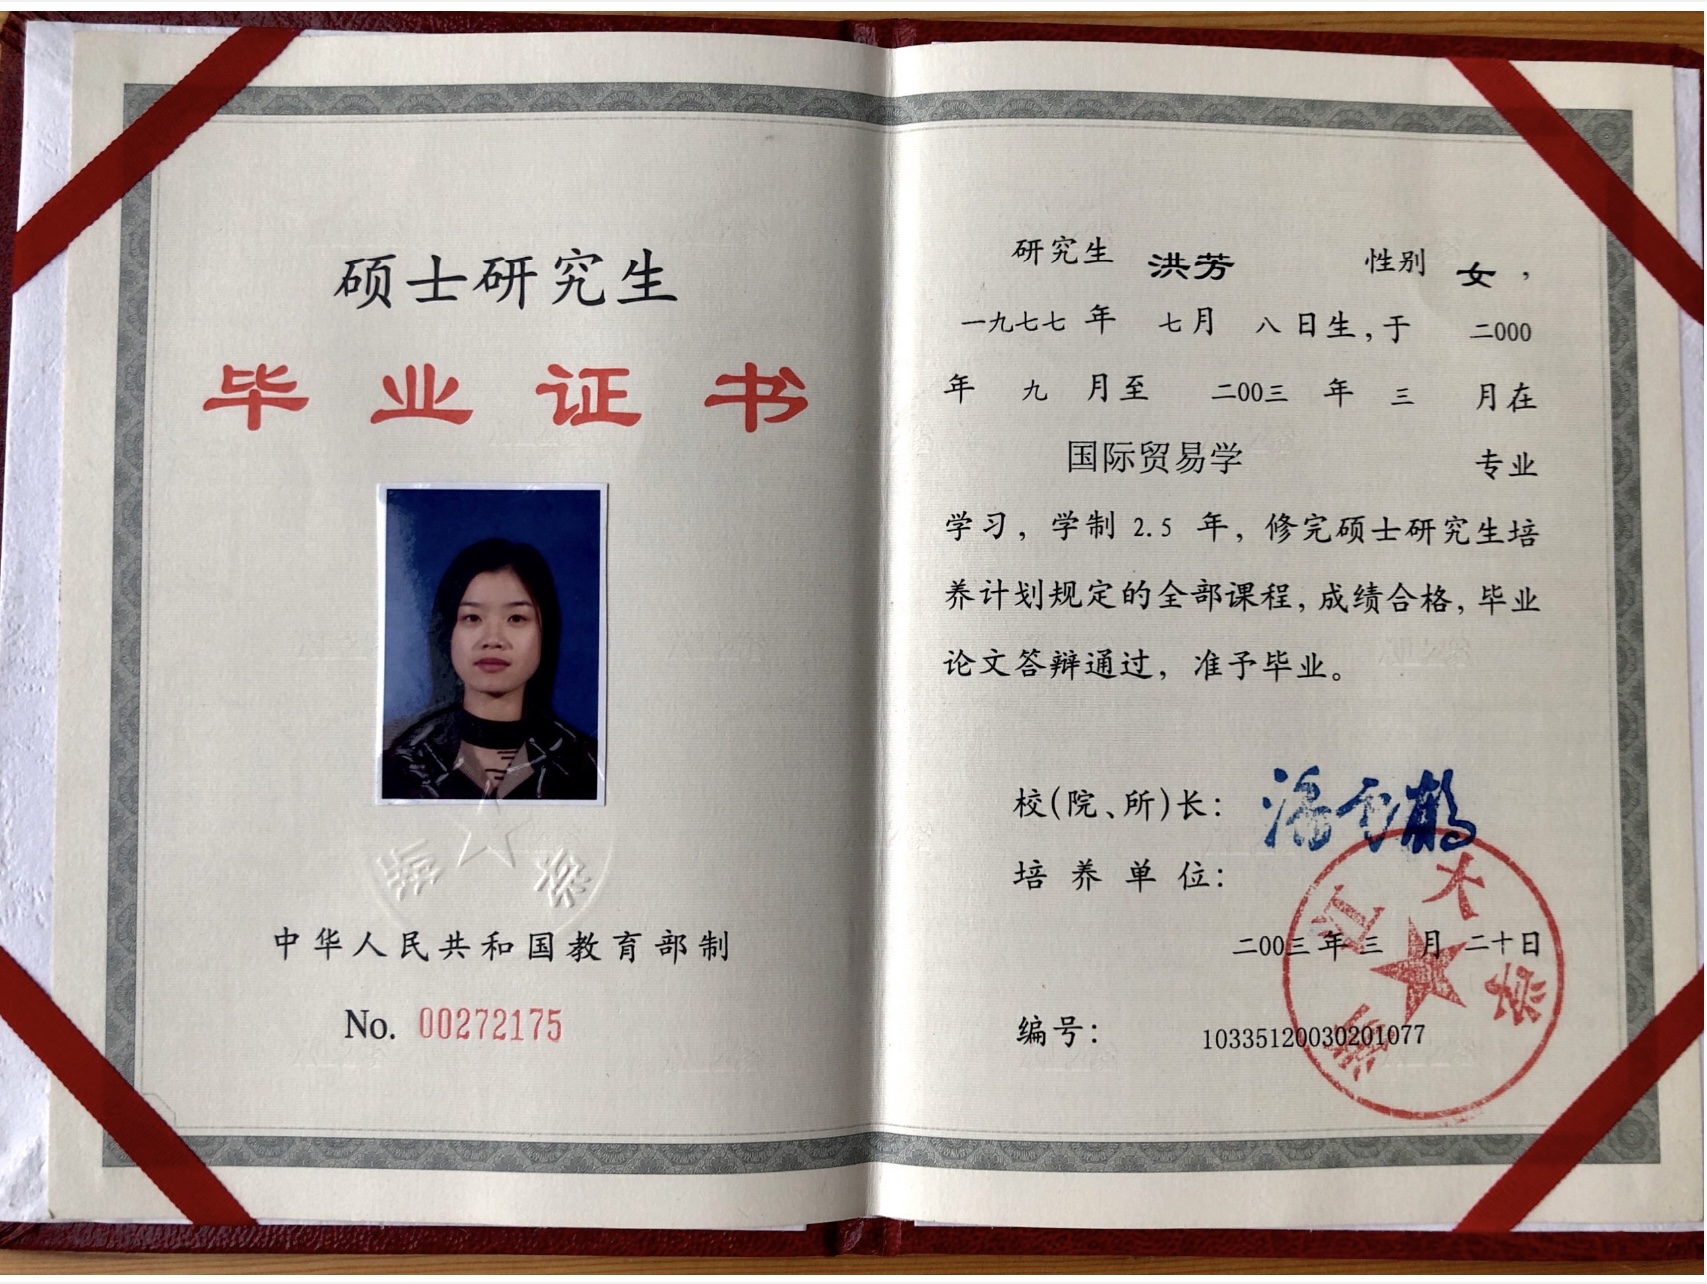 硕士研究生
毕业证书
中华人民共和国教育部制
No. 00272175
研究生 洪芳 性别 女,
一九七七 年 七月 八日生,于 二000
年 九 月至 二00三 年 三 月在
国际贸易学 专业
学习, 学制 2.5 年, 修完硕士研究生培
养计划规定的全部课程, 成绩合格, 毕业
论文答辩通过, 准予毕业。
校(院、所)长: 潘云鹤
培养单位:
浙江大学
二00三年三 月 二十日
编号: 10335120030201077